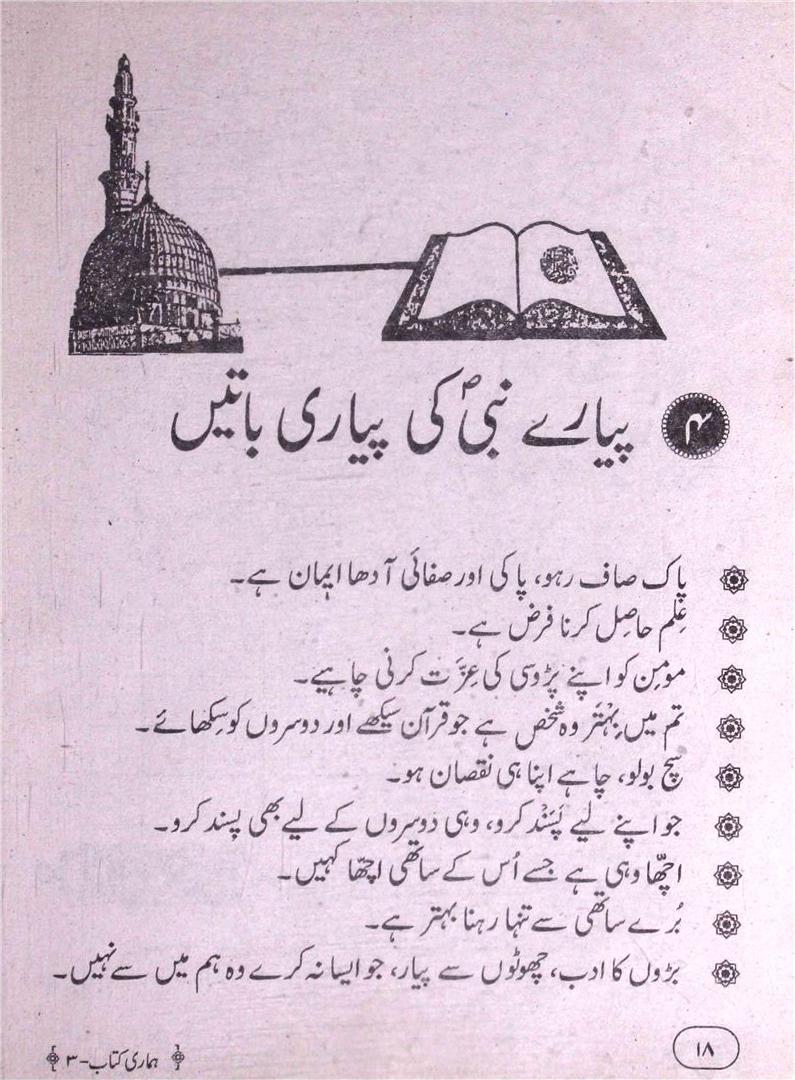 ۴ پیارے نبیؐ کی پیاری باتیں
پاک صاف رہو، پاکی اور صفائی آدھا ایمان ہے۔
عِلم حاصِل کرنا فرض ہے۔
مومِن کو اپنے پڑوسی کی عِزَّت کرنی چاہیے۔
تم میں بِہْتَر وہ شخص ہے جو قرآن سیکھے اور دوسروں کو سِکھائے۔
سچ بولو، چاہے اپنا ہی نقصان ہو۔
جو اپنے لیے پَسَنْد کرو، وہی دوسروں کے لیے بھی پسند کرو۔
اچھّا وہی ہے جسے اُس کے ساتھی اچھّا کہیں۔
بُرے ساتھی سے تنہا رہنا بہتر ہے۔
بڑوں کا ادب، چھوٹوں سے پیار، جو ایسا نہ کرے وہ ہم میں سے نہیں۔
۱۸
ہماری کتاب - ۳